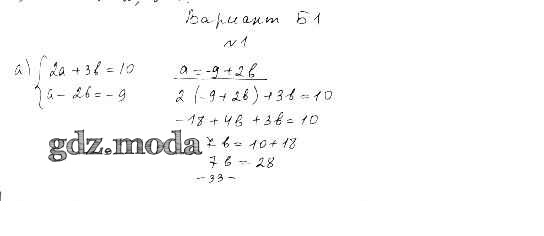 Вариант Б1
№1
а) { 2a + 3b = 10
a - 2b = -9
a = -9 + 2b
2 (-9 + 2b) + 3b = 10
-18 + 4b + 3b = 10
gdz.moda
7b = 10 + 18
7b = 28
-33-